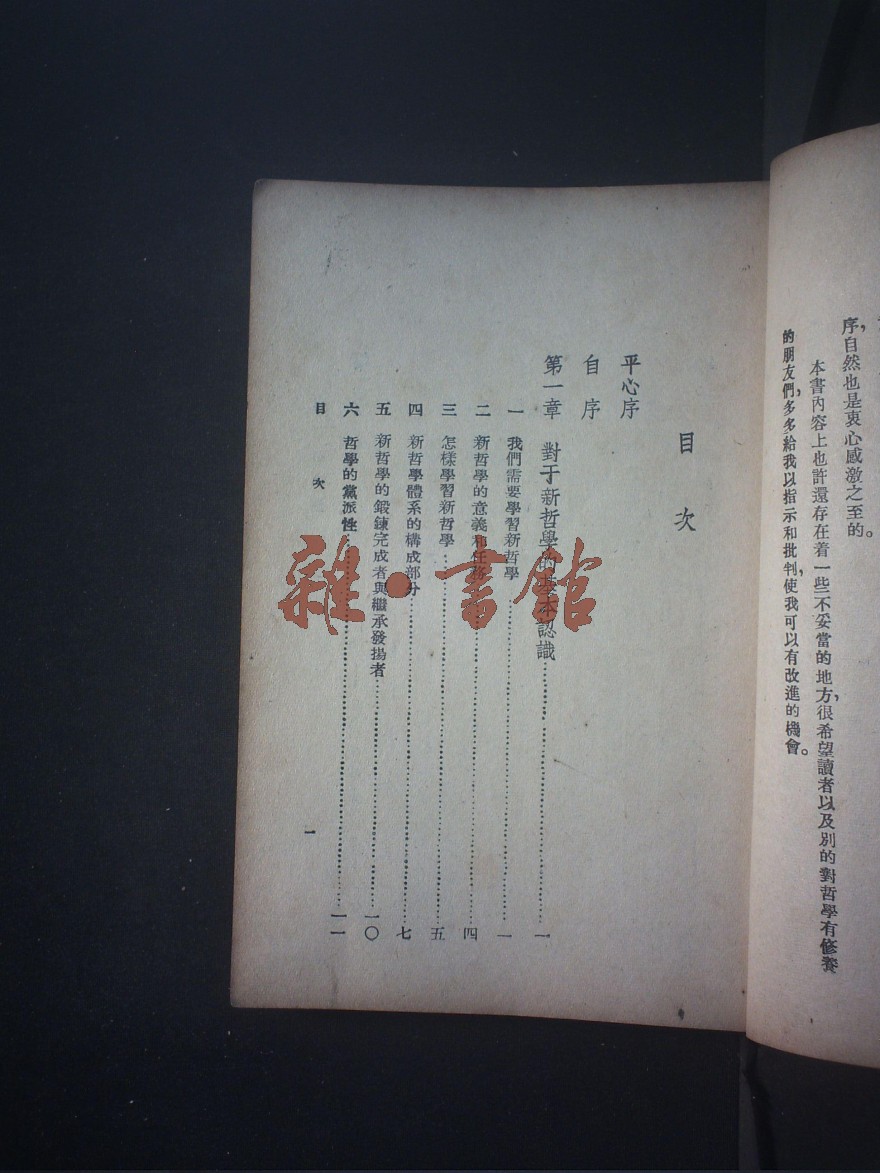 序，自然也是衷心感激之至的。
本書內容上也許還存在着一些不妥當的地方，很希望讀者以及別的對哲學有修養
的朋友們，多多給我以指示和批判，使我可以有改進的機會。
目次
平心序
自序
第一章 對于新哲學的基本認識……一
一 我們需要學習新哲學……一
二 新哲學的意義和任務……四
三 怎樣學習新哲學……五
四 新哲學體系的構成部分……七
五 新哲學的鍛鍊完成者與繼承發揚者……一〇
六 哲學的黨派性……一一
目次
一
雜·書館